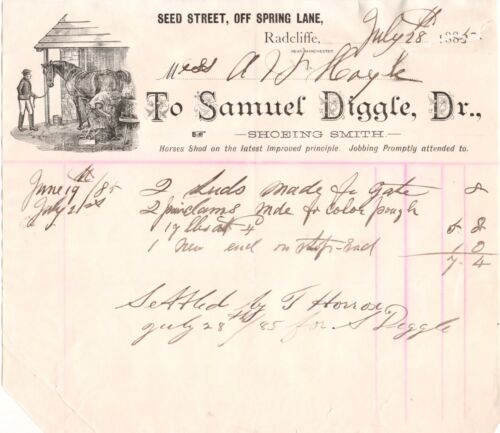 SEED STREET, OFF SPRING LANE,
Radcliffe,
NEAR MANCHESTER,
July 28th 1885
Mess A & J Hoyle
To Samuel Diggle, Dr.,
SHOEING SMITH.
Horses Shod on the latest improved principle. Jobbing Promptly attended to.
June 19th /85 2 Luds made for gate 8
July 2 2 clams mde for color
17 lbs at 4d 5 8
1 New end on 1 0
7 4
Settled by T Horrox
July 28th/85 for S Diggle